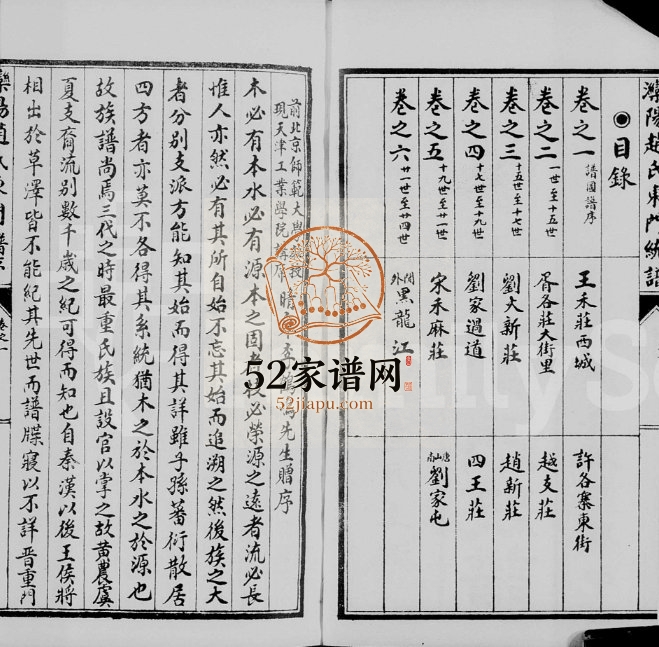 灤陽趙氏東門統譜
目錄
卷之一 譜圖譜序 王禾莊西城 許各寨東街
卷之二 一世至十五世 胥各莊大街里 越支莊
卷之三 十五世至十七世 劉大新莊 趙新莊
卷之四 十七世至十九世 劉家過道 四王莊
卷之五 十九世至廿一世 宋禾麻莊 唐山南劉家屯
卷之六 廿一世至廿四世 關外黑龍江
前北京師範大
現天津工業學院 先生贈序
木必有本水必有源本之固者枝必榮源之遠者流必長
惟人亦然必有其所自始不忘其始而追溯之然後族之大
者分別支派方能知其始而得其詳雖子孫蕃衍散居
四方者亦莫不各得其系統猶木之於本水之於源也
故族譜尚焉三代之時最重氏族且設官以掌之故黃農虞
夏支裔流別數千歲之紀可得而知也自秦漢以後王侯將
相出於草澤皆不能紀其先世而譜牒寢以不詳晉重門
卷之一
52家谱网
52jiapu.com